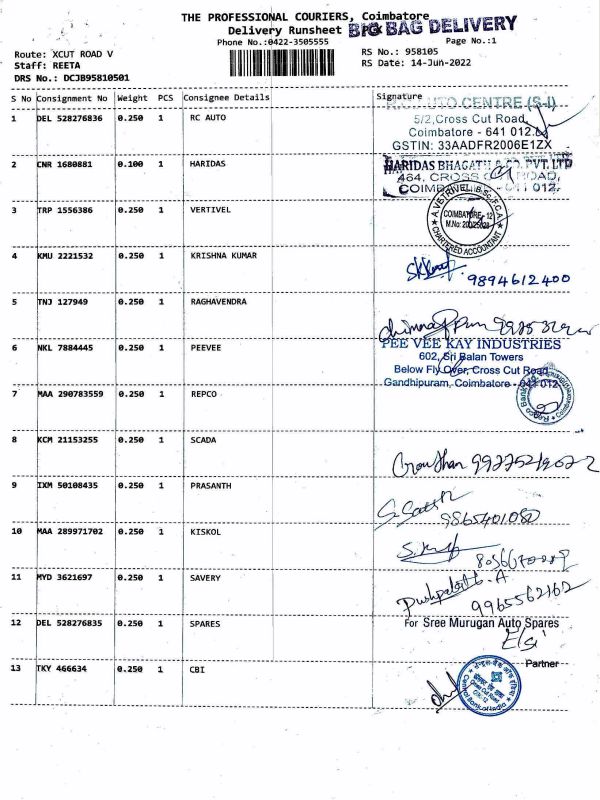 THE PROFESSIONAL COURIERS, Coimbatore
Delivery Runsheet
BIG BAG DELIVERY
Phone No.:0422-3505555
Page No.:1
Route: XCUT ROAD V
RS No.: 958105
Staff: REETA
RS Date: 14-Jun-2022
DRS No.: DCJB95810501
S No Consignment No Weight PCS Consignee Details Signature
1 DEL 528276836 0.250 1 RC AUTO
AUTO CENTRE (S-I)
5/2,Cross Cut Road,
Coimbatore - 641 012.
GSTIN: 33AADFR2006E1ZX
2 CNR 1680881 0.100 1 HARIDAS
HARIDAS BHAGATH & CO. PVT. LTD
464, CROSS ROAD,
COIMB 641 012.
3 TRP 1556386 0.250 1 VERTIVEL
A.VETRIVEL, B.Sc., F.C.A
COIMBATORE - 12
M.No:
CHARTERED ACCOUNTANT
4 KMU 2221532 0.250 1 KRISHNA KUMAR
9894612400
5 TNJ 127949 0.250 1 RAGHAVENDRA
6 NKL 7884445 0.250 1 PEEVEE
PEE VEE KAY INDUSTRIES
602, Sri Balan Towers
Below Fly Over, Cross Cut Road
Gandhipuram, Coimbatore - 641 012
7 MAA 290783559 0.250 1 REPCO
8 KCM 21153255 0.250 1 SCADA
9 IXM 50108435 0.250 1 PRASANTH
9865401080
10 MAA 289971702 0.250 1 KISKOL
11 MYD 3621697 0.250 1 SAVERY
9965562162
12 DEL 528276835 0.250 1 SPARES
For Sree Murugan Auto Spares
Partner
13 TKY 466634 0.250 1 CBI
Central Bank of India